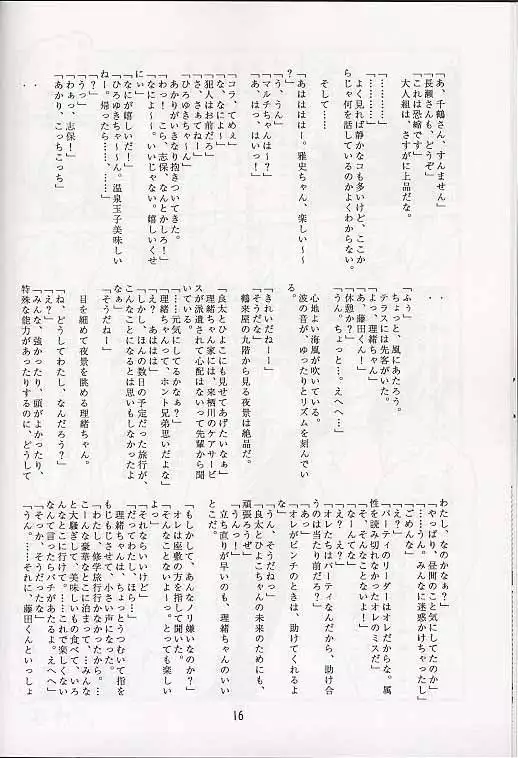 「あ、千鶴さん、すんません」
「長瀬さんも、どうぞ」
「これは恐縮です」
大人組は、さすがに上品だな。
「…………」
「…………」
よく見れば静かなコも多いけど、ここか
らじゃ何を話しているのかよくわからない。
そして……
「あはははは〜。雅史ちゃん、楽しい〜
？」
「う、うん」
「マルチちゃんは〜？」
「あ、はっ、はいっ！」
「コラ、てめぇ」
「な、なによ〜」
「犯人はお前だろ」
「さ、さぁてねー」
「ひろゆきちゃ〜ん」
あかりがいきなり抱きついてきた。
「わっ！こら、志保、なんとかしろ！」
「なによ〜〜、いいじゃない。嬉しいくせ
に」
「なにが嬉しいんだ！」
「ひろゆきちゃ〜〜ん。温泉玉子美味しい
ねー。帰ったら……、……」
「？」
「うっ」
「わぁっ、志保！」
「あかり、こっちこっち」
・
・
・
・
「ふぅ」
ちょっと、風にあたろう。
テラスには先客がいた。
「よっ、理緒ちゃん」
「あ、藤田くん！」
「休憩か？」
「うん。ちょっと…。えへへ…」
心地よい海風が吹いている。
波の音が、ゆったりとリズムを刻んでい
る。
「きれいだねー」
「そうだな」
鶴来屋の九階から見る夜景は絶品だ。
「良太とひよこにも見せてあげたいなぁ」
理緒ちゃん家には、来栖川のケアサービ
スが派遣されて心配はないって先輩から聞
いている。
「……元気にしてるかなぁ？」
「理緒ちゃんって、ホント兄弟思いだよな」
「え？あははは」
「しかし、ほんの数日の予定だった旅行が、
こんなことになるとは思いもしなかったよ
なぁ」
「そうだねー」
目を細めて夜景を眺める理緒ちゃん。
「ね、どうしてわたし、なんだろう？」
「え？」
「みんな、強かったり、頭がよかったり、
特殊な能力があったりするのに、どうして
わたし、なのかなぁ？」
「やっぱり、昼間のこと気にしてたのか」
「……うん。みんなに迷惑かけちゃったし」
「ごめんな」
「えっ？」
「パーティのリーダーはオレだからな。属
性を読み切れなかったオレのミスだ」
「そ、そんなことないよ！」
「なーんてな」
「え？え？」
「オレたちはパーティなんだから、助け合
うのは当たり前だろ？」
「あっ」
「オレがピンチのときは、助けてくれるよ
な」
「うん、そうだねっ」
「良太とひよこちゃんの未来のためにも、
頑張ろうぜ」
「うんっ！」
立ち直りが早いのも、理緒ちゃんのいい
とこだ。
「もしかして、あんなノリ嫌いなのか？」
オレは座敷の方を指して聞いた。
「そんなことないよーっ。とっても楽しい
よ」
「それならいいけど」
「だってわたし、ほら…」
理緒ちゃんは、ちょっとうつむいて指を
もじもじさせて、小さい声になった。
「わたし、修学旅行行かなかったから。…
こーんな豪華なとこに泊まって、…みんな
と大騒ぎして、美味しいもの食べて、いろ
んなとこに行けて。……これで楽しくない
なんて言ったらバチがあたるよ。えへへ」
「そっか、そうだったな」
「うん。……それに、藤田くんといっしょ
16